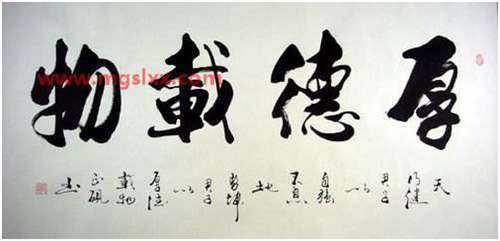 厚德載物
www.mgslxx.com
天
行健
君子
以
自強
不息
地
勢坤
君子
以
厚德
載物
书